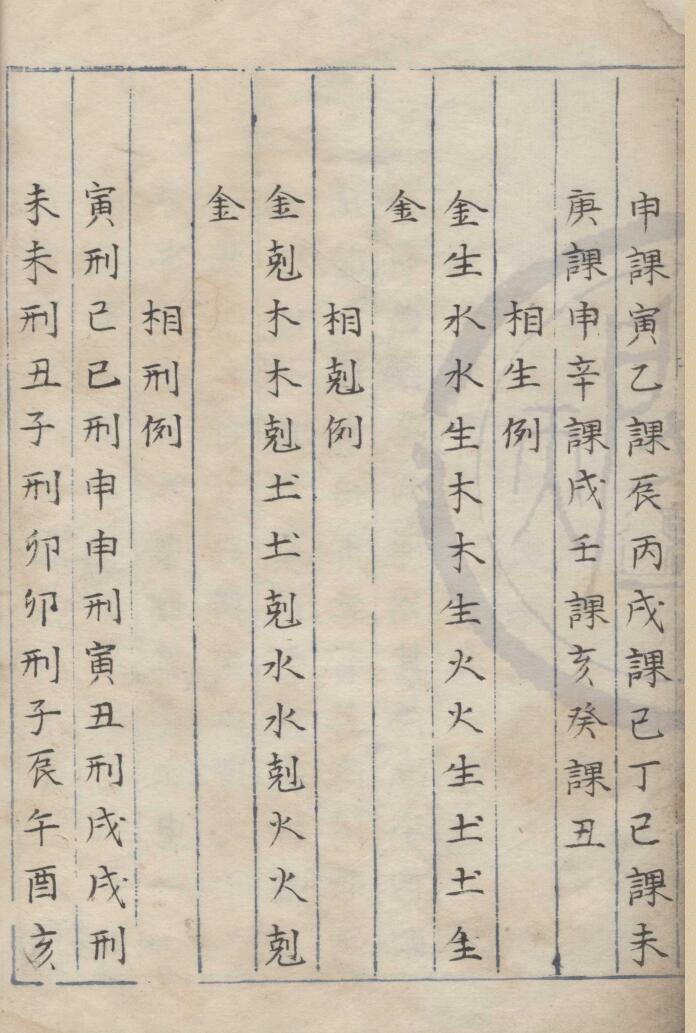 申課寅乙課辰丙戊課巳丁己課未
庚課申辛課戌壬課亥癸課丑
相生例
金生水水生木木生火火生土土生
金
相剋例
金剋木木剋土土剋水水剋火火剋
金
相刑例
寅刑巳巳刑申申刑寅丑刑戌戌刑
未未刑丑子刑卯卯刑子辰午酉亥